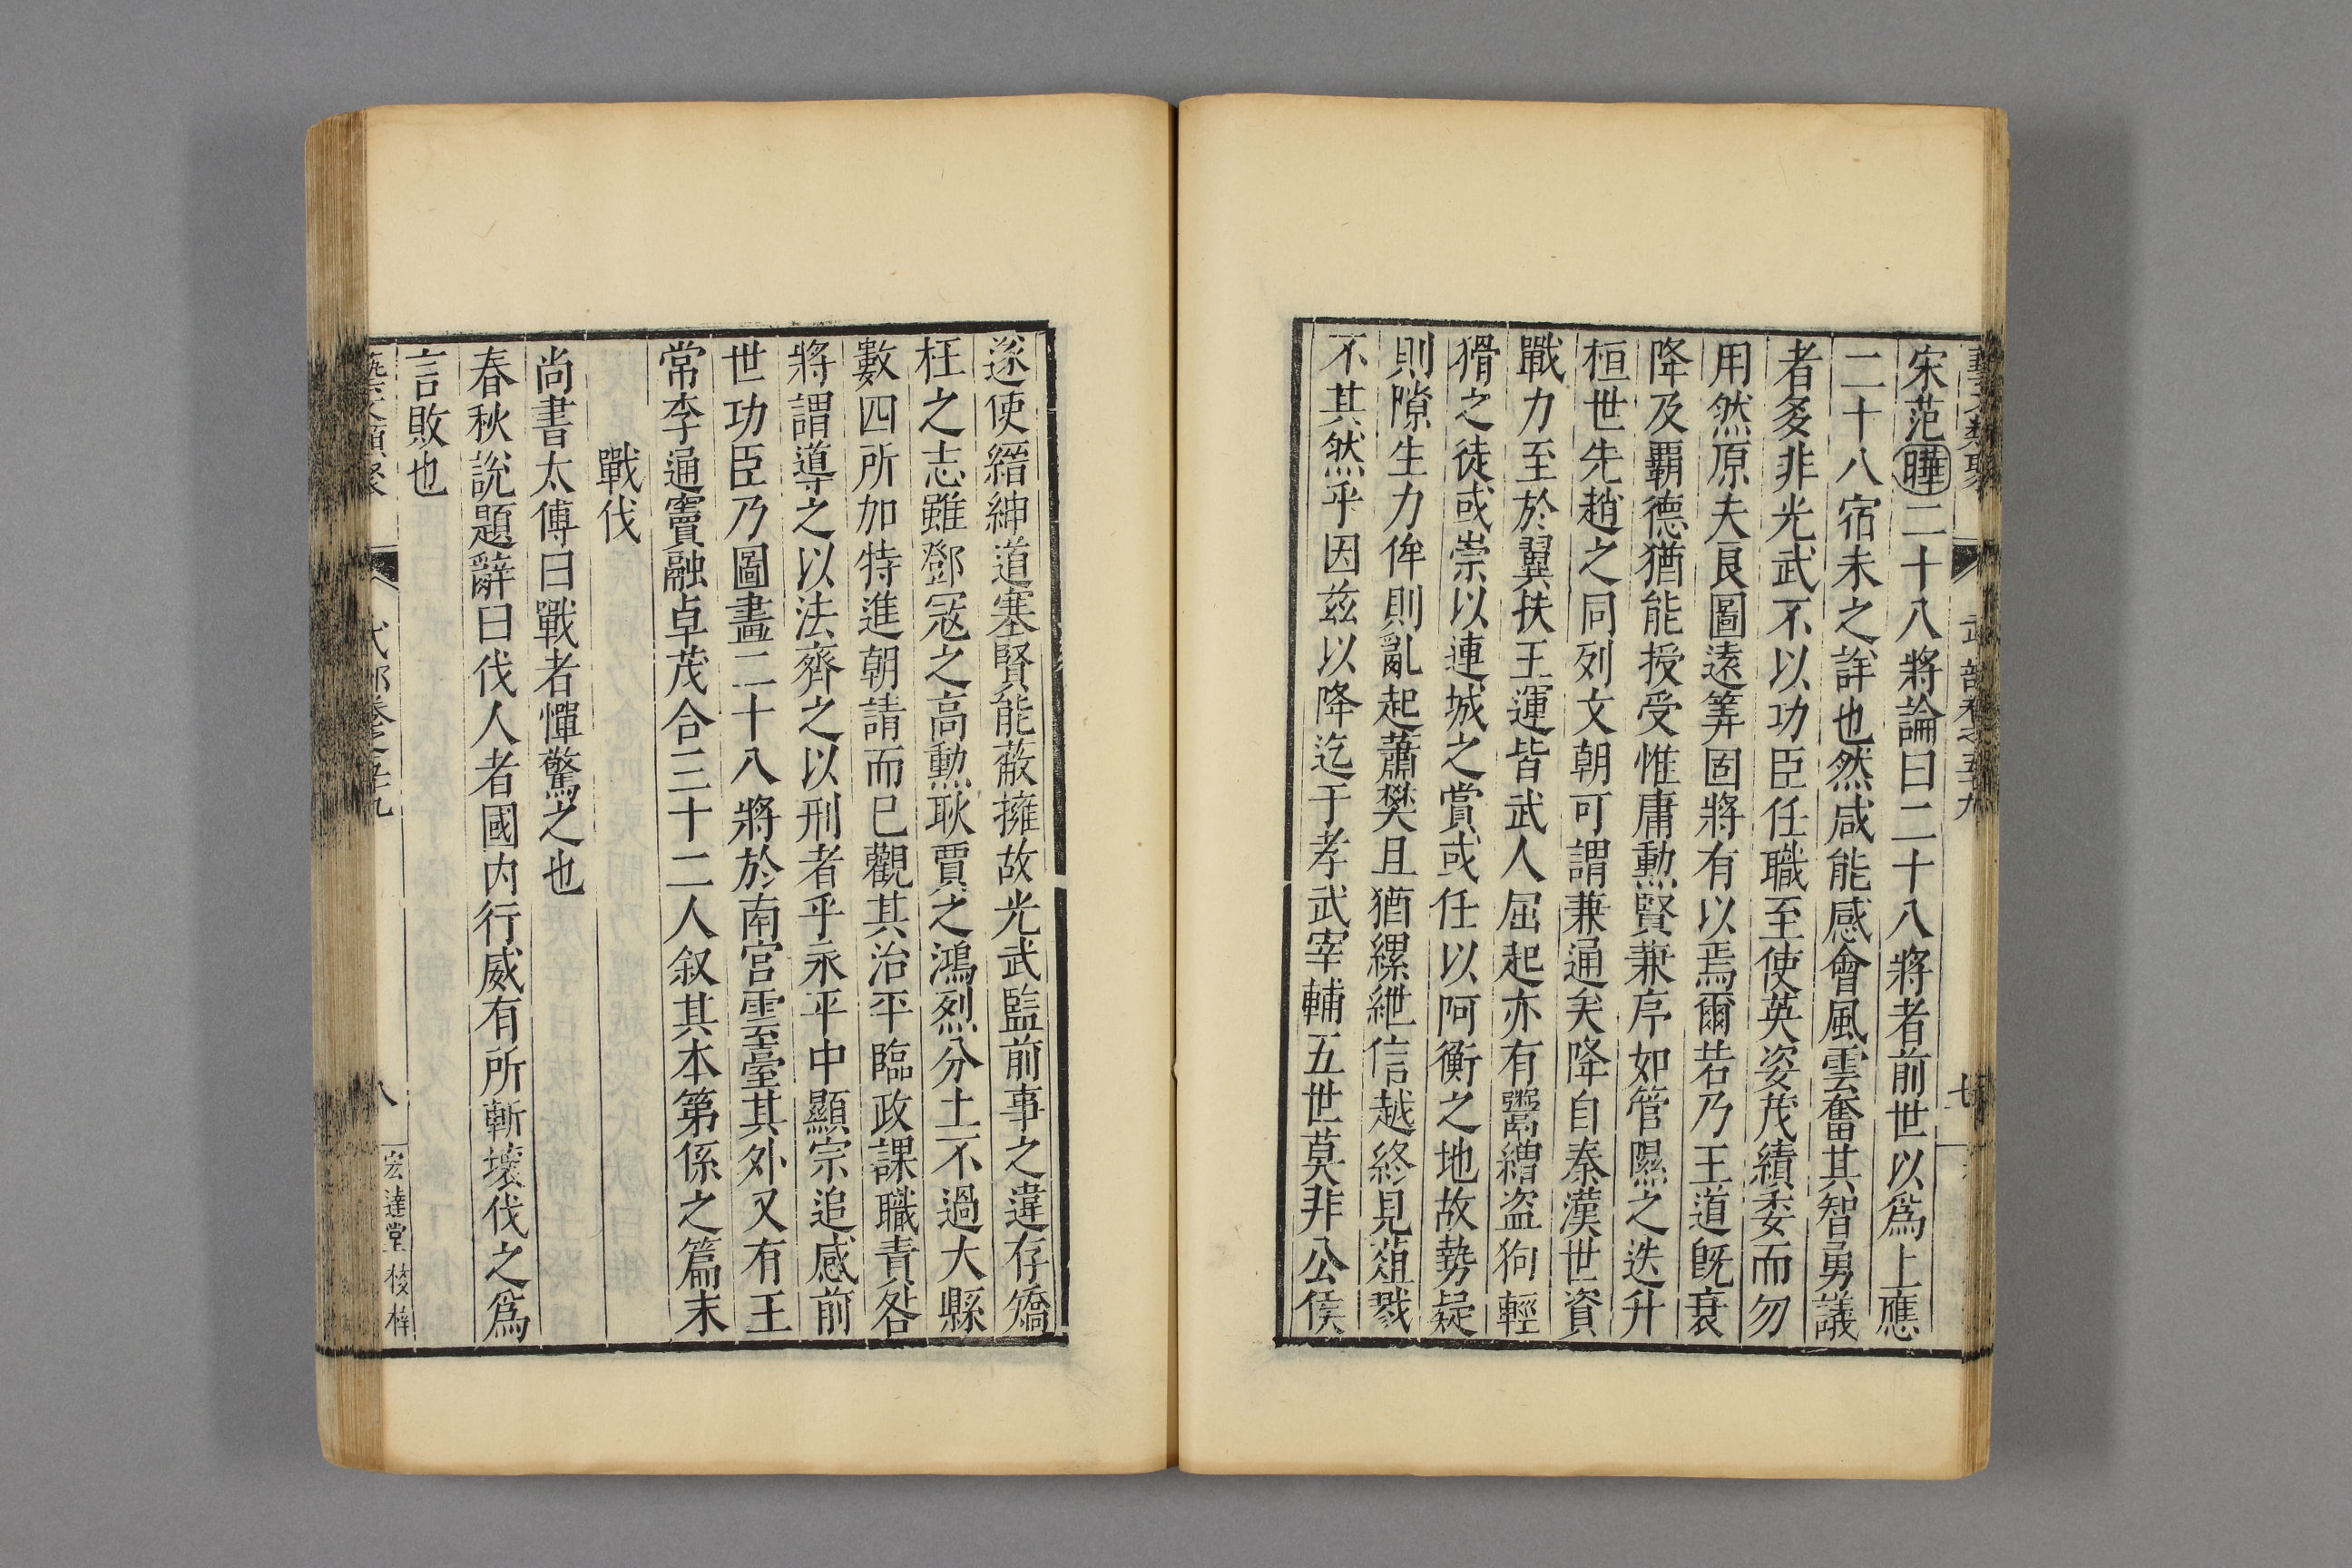 宋范曄二十八將論曰二十八將者前世以爲上應
二十八宿未之詳也然咸能感會風雲奮其智勇議
者多非光武不以功臣任職至使英姿茂績委而勿
用然原夫良圖遠筭固將有以焉爾若乃王道旣衰
降及覇德猶能授受惟庸勳賢兼序如管隰之迭升
桓世先趙之同列文朝可謂兼通矣降自秦漢世資
戰力至於翼扶王運皆武人屈起亦有鬻繒盗狗輕
猾之徒或崇以連城之賞或任以阿衡之地故勢疑
則隙生力侔則亂起蕭樊且猶縲紲信越終見葅戮
不其然乎因兹以降迄于孝武宰輔五世莫非公侯
遂使縉紳道塞賢能蔽擁故光武監前事之違存矯
枉之志雖鄧冦之高勳耿賈之鴻烈分土不過大縣
數四所加特進朝請而已觀其治平臨政課職責咎
將謂導之以法齊之以刑者乎永平中顯宗追感前
世功臣乃圖畫二十八將於南宫雲臺其外又有王
常李通竇融卓茂合三十二人叙其本第係之篇末
戰伐
尚書太傅曰戰者憚驚之也
春秋說題辭曰伐人者國内行威有所斬壞伐之爲
言敗也
藝文類聚
武部卷之五十九
八
宏達堂校梓